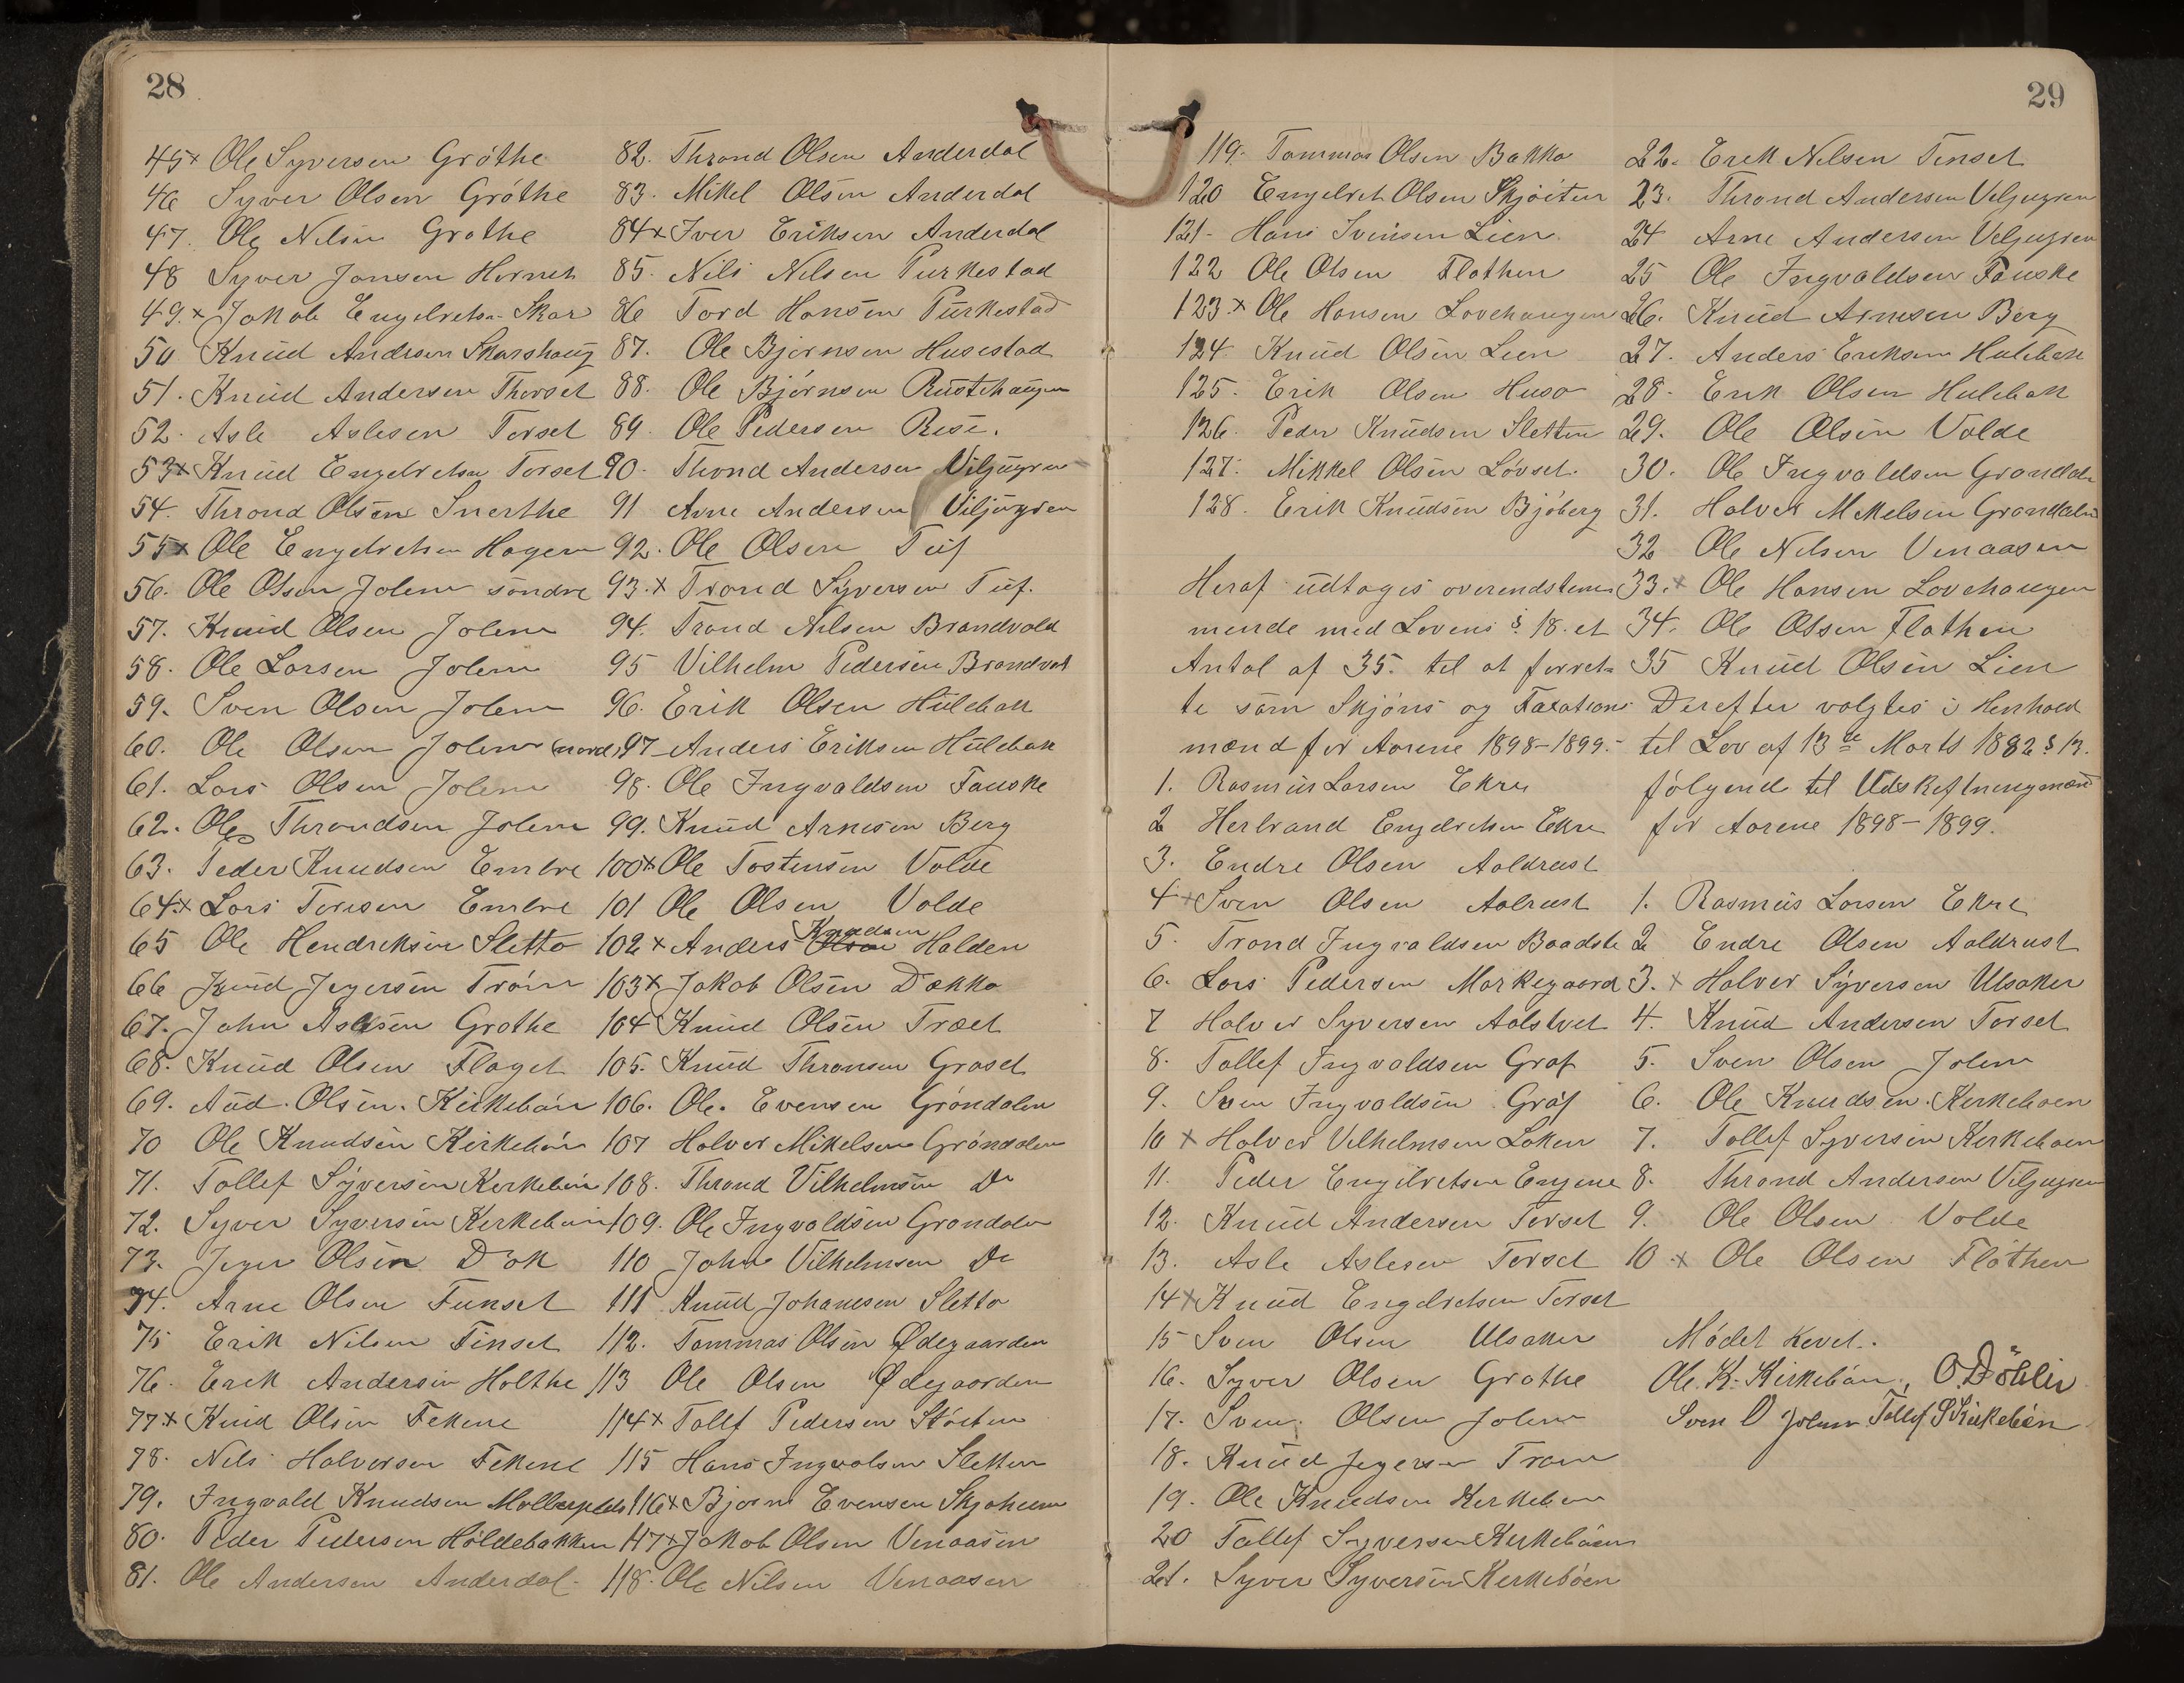 28
45 x Ole Syversen Gröthe
46 Syver Olsen Gröthe
47. Ole Nilsen Grøthe
48 Syver Jonsen Hirneh
49. x Jakob Engebretsen Skar
50 Knud Andersen Skarshaug
51. Knud Andersen Thorset
52. Asle Aslesen Torset
53 x Knud Engebretsen Torset
54. Thrond Olsen Snerthe
55 x Ole Engebretsen Hagen
56. Ole Olsen Jolem söndre
57. Knud Olsen Jolem
58. Ole Larsen Jolem
59. Sven Olsen Jolem
60. Ole Olsen Jolem (nord)
61. Lars Olsen Jolem
62. Ole Throndsen Jolem
63. Peder Knudsen Embre
64. x Lars Toresen Embre
65 Ole Hendriksen Sletto
66 Knud Jegersen Tröim
67. John Aslesen Grothe
68. Knud Olsen Flaget
69. And. Olsen. Kirkebön
70 Ole Knudsen Kirkebön
71. Tollef Syversen Kirkebön
72. Syver Syversen Kirkebön
73. Jeger Olsen Dök
74. Arne Olsen Finset
75 Erik Nilsen Finset
76. Erik Andersen Holthe
77 x Knud Olsen Fekene
78. Nils Halvorsen Fekene
79. Ingvald Knudsen Mollerplds
80. Peder Pedersen Höldebakken
81. Ole Andersen Anderdal
82. Thrond Olsen Anderdal
83. Mikel Olsen Anderdal
84 x Iver Eriksen Anderdal
85. Nils Nilsen Purkestad
86 Tord Hansen Purkestad
87. Ole Bjørnsen Husestad
88. Ole Bjørnsen Rustehaugen
89. Ole Pedersen Rise.
90. Thond Andersen Viljugren
91 Arne Andersen Viljugren
92. Ole Olsen Tuf
93. x Trond Syversen Tuf.
94. Trond Nilsen Brandvold
95 Vilhelm Pedersen Brandvol
96. Erik Olsen Hulebak
97 Anders Eriksen Hulebak
98. Ole Ingvaldsen Fauske
99. Knud Arnesen Berg
100 x Ole Tostensen Volde
101 Ole Olsen Volde
102 x Anders Olsen Knudsen Halden
103 x Jakob Olsen Dokko
104 Knud Olsen Træet
105. Knud Thronsen Graset
106. Ole. Evensen Gröndalen
107 Halvor Mikelsen Gröndalen
108. Thrond Vilhelmsen Do
109. Ole Ingvaldsen Grøndalen
110 John Vilhelmsen Do
111 Knud Johanesen Sletto
112. Tommas Olsen Ødegaarden
113 Ole Olsen Ødegaarden
114 x Tollf Pedersen Stöiten
115 Hans Ingvalsen Sletten
116 x Bjørn Evensen Skjøheim
117 x Jakob Olsen Venaasen
118. Ole Nilsen Venaasen
29
119. Tommas Olsen Bakko
120 Engebret Olsen Skjöiten
121- Hans Svensen Lien
122 Ole Olsen Flathen
123. x Ole Hansen Lovehaugen
124. Knud Olsen Lien
125. Erik Olsen Huso
126. Peder Knudsen Sletten
127. Mikkel Olsen Lövset.
128. Erik Knudsen Bjöberg
Heraf udtages overendstem-
mende med Lovens § 18. et
Antal af 35. til at forret-
te som Skjöns og Taxations
mænd for Aarene 1898-1899.-
1. Rasmus Larsen Ekre
2 Herbrand Engebretsen Ekre
3. Endre Olsen Aoldrust
4 x Sven Olsen Aalrust
5. Trond Ingvaldsen Baadste
6. Lars Pedersen Markegaard
7 Halvor Syversen Aalstvet
8. Tollef Ingvaldsen Graf
9. Sven Ingvaldsen Graf
10 x Halvor Vilhelmsen Løken
11. Peder Engebretsen Engene
12. Knud Andersen Torset
13. Asle Aslesen Torset
14 x Knud Engebretsen Torset
15 Sven Olsen Ulsaker
16. Syver Olsen Grøthe
17. Sven Olsen Jolem
18. Knud Jegersen Trøim
19. Ole Knudsen Kirkeböen
20 Tollef Syversen Kirkeböen
21. Syver Syversen Kirkeböen
22. Erik Nilsen Finset
23. Thrond Andersen Viljugren
24 Arne Andersen Viljugren
25 Ole Ingvaldsen Fauske
26. Knud Arnesen Berg
27. Anders Eriksen Hulebak
28. Erik Olsen Hulebak
29. Ole Olsen Volde
30. Ole Ingvaldsen Grøndalen
31. Halvor Mikelsen Grøndalen
32 Ole Nilsen Venaasen
33. x Ole Hansen Lovehaugen
34. Ole Olsen Flathen
35 Knud Olsen Lien
Derefter valgtes i Henhold
til Lov af 13de Marts 1882 § 13.
fölgende til Udskiftningsmænd
for Aarene 1898-1899.
1. Rasmus Larsen Ekre
2 Endre Olsen Aaldrust
3. x Halvor Syversen Ulsaker
4. Knud Andersen Torset
5. Sven Olsen Jolem
6. Ole Knudsen. Kirkeboen
7. Tollef Syversen Kirkeboen
8. Thrond Andersen Viljugren
9. Ole Olsen Volde
10 x Ole Olsen Flöthen
Mödet hevet.
Ole. K. Kirkebön, O. Döhlin
Sven O Jolem Tollef S Kirkebön